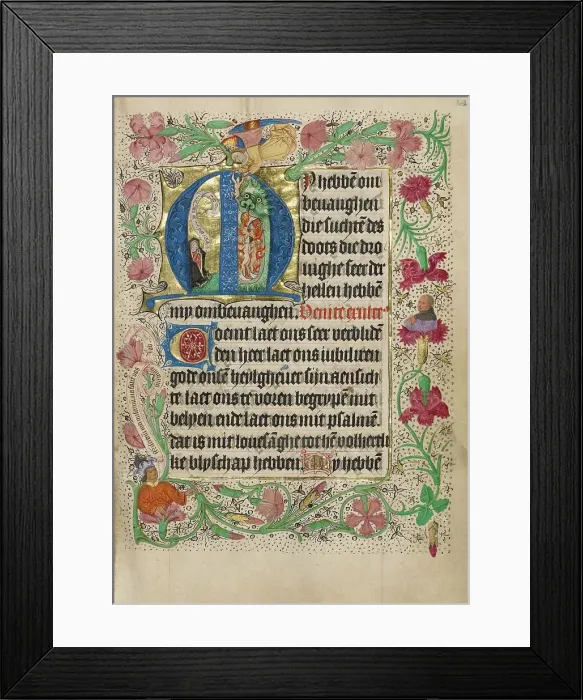 M y hebbē om
bevanghen
die suchtē des
doots die dro
nighe seer der
hellen hebbē
my ombevanghen. Venite exulte
Coemt laet ons seer verblidē
den heer laet ons iubilieren
gode onsē heylgheuer sijn aensich
te laet ons te voren begrypē mit
belyen ende laet ons mit psalmē
dat is mit lovesanghe tot hē volherteli
ke blyschap hebben My hebbē